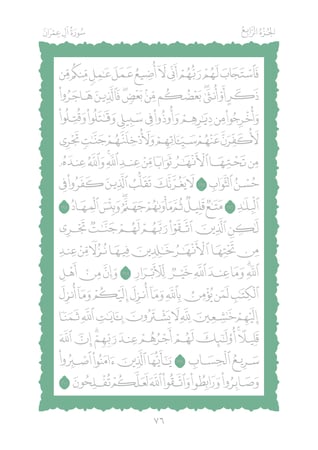 الجُزْءُ الرَّابِعُ
سُورَةُ آلِ عِمْرَانَ
فَٱسْتَجَابَ لَهُمْ رَبُّهُمْ أَنِّى لَآ أُضِيعُ عَمَلَ عَٰمِلٍ مِّنكُم مِّن
ذَكَرٍ أَوْ أُنثَىٰ ۖ بَعْضُكُم مِّنۢ بَعْضٍ ۖ فَٱلَّذِينَ هَاجَرُوا۟
وَأُخْرِجُوا۟ مِن دِيَٰرِهِمْ وَأُوذُوا۟ فِى سَبِيلِى وَقَٰتَلُوا۟ وَقُتِلُوا۟
لَأُكَفِّرَنَّ عَنْهُمْ سَيِّـَٔاتِهِمْ وَلَأُدْخِلَنَّهُمْ جَنَّٰتٍ تَجْرِى
مِن تَحْتِهَا ٱلْأَنْهَٰرُ ثَوَابًا مِّنْ عِندِ ٱللَّهِ ۗ وَٱللَّهُ عِندَهُۥ
حُسْنُ ٱلثَّوَابِ لَا يَغُرَّنَّكَ تَقَلُّبُ ٱلَّذِينَ كَفَرُوا۟ فِى
ٱلْبِلَٰدِ مَتَٰعٌ قَلِيلٌ ثُمَّ مَأْوَىٰهُمْ جَهَنَّمُ ۚ وَبِئْسَ ٱلْمِهَادُ
لَٰكِنِ ٱلَّذِينَ ٱتَّقَوْا۟ رَبَّهُمْ لَهُمْ جَنَّٰتٌ تَجْرِى
مِن تَحْتِهَا ٱلْأَنْهَٰرُ خَٰلِدِينَ فِيهَا نُزُلًا مِّنْ عِندِ
ٱللَّهِ ۗ وَمَا عِندَ ٱللَّهِ خَيْرٌ لِّلْأَبْرَارِ وَإِنَّ مِنْ أَهْلِ
ٱلْكِتَٰبِ لَمَن يُؤْمِنُ بِٱللَّهِ وَمَآ أُنزِلَ إِلَيْكُمْ وَمَآ أُنزِلَ
إِلَيْهِمْ خَٰشِعِينَ لِلَّهِ لَا يَشْتَرُونَ بِـَٔايَٰتِ ٱللَّهِ ثَمَنًا
قَلِيلًا ۗ أُو۟لَٰٓئِكَ لَهُمْ أَجْرُهُمْ عِندَ رَبِّهِمْ ۗ إِنَّ ٱللَّهَ
سَرِيعُ ٱلْحِسَابِ يَٰٓأَيُّهَا ٱلَّذِينَ ءَامَنُوا۟ ٱصْبِرُوا۟
وَصَابِرُوا۟ وَرَابِطُوا۟ وَٱتَّقُوا۟ ٱللَّهَ لَعَلَّكُمْ تُفْلِحُونَ
٧٦